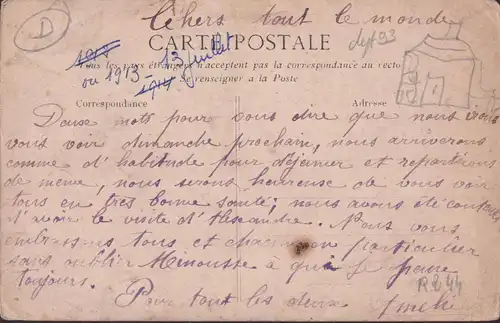 Chers tout le monde
D
CARTE POSTALE
dept 93
Tous les pays étrangers n'acceptent pas la correspondance au recto
Se renseigner à la Poste
1918
ou 1913 - 13 juillet
1914
Correspondance
Adresse
Deux mots pour vous dire que nous irons
vous voir dimanche prochain, nous arriverons
comme d'habitude pour déjeuner et repartirons
de même, nous serons heureuse de vous voir
tous en très bonne santé; nous avons été contents
d'avoir la visite d'Alexandre. Nous vous
embrassons tous et chacun en particulier
sans oublier Minousse à qui je pense
toujours.
R244
Pour tout les deux